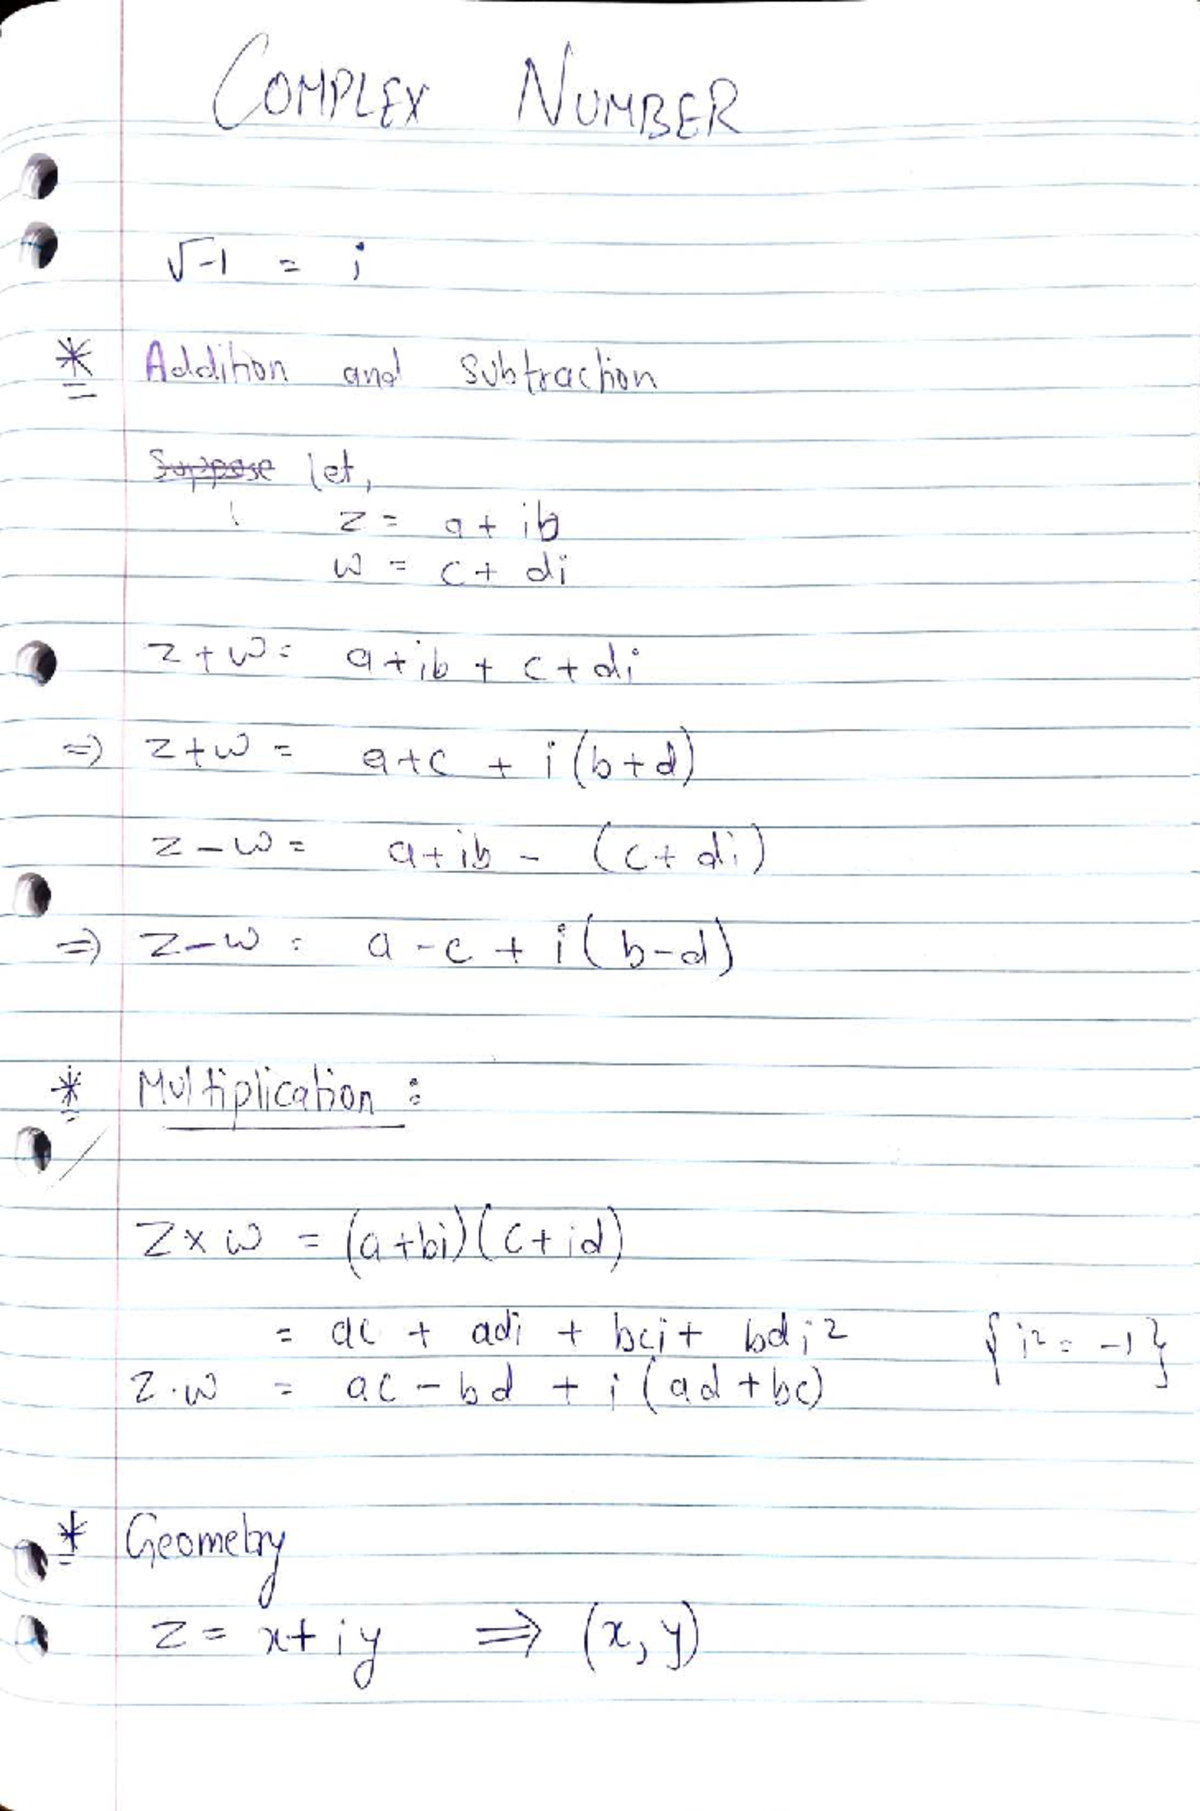 COMPLEX NUMBER
√-1 = i
* Addition and subtraction
Suppose let,
z = a + ib
w = c + di
z + w = a + ib + c + di
=> z + w = a + c + i(b + d)
z - w = a + ib - (c + di)
=> z - w = a - c + i(b - d)
* Multiplication :
z × w = (a + bi)(c + id)
= ac + adi + bci + bdi² {i² = -1}
z·w = ac - bd + i(ad + bc)
* Geometry
z = x + iy => (x, y)